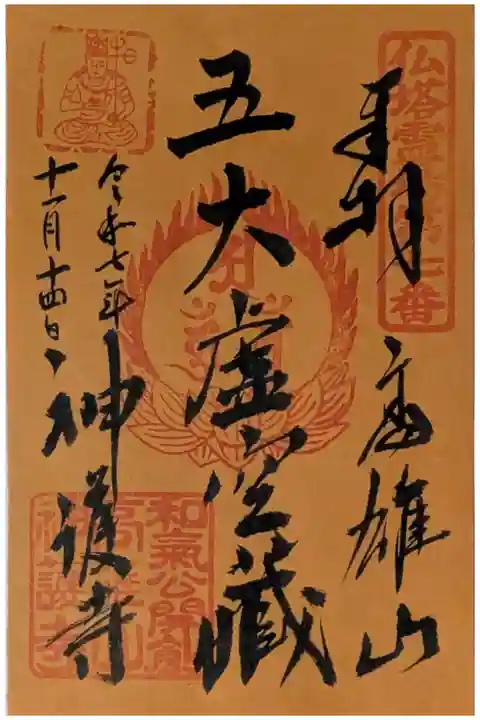 奉拝
高雄山
五大虚空蔵
令和七年
十一月十四日
神護寺
和氣公開創
高雄山
神護寺